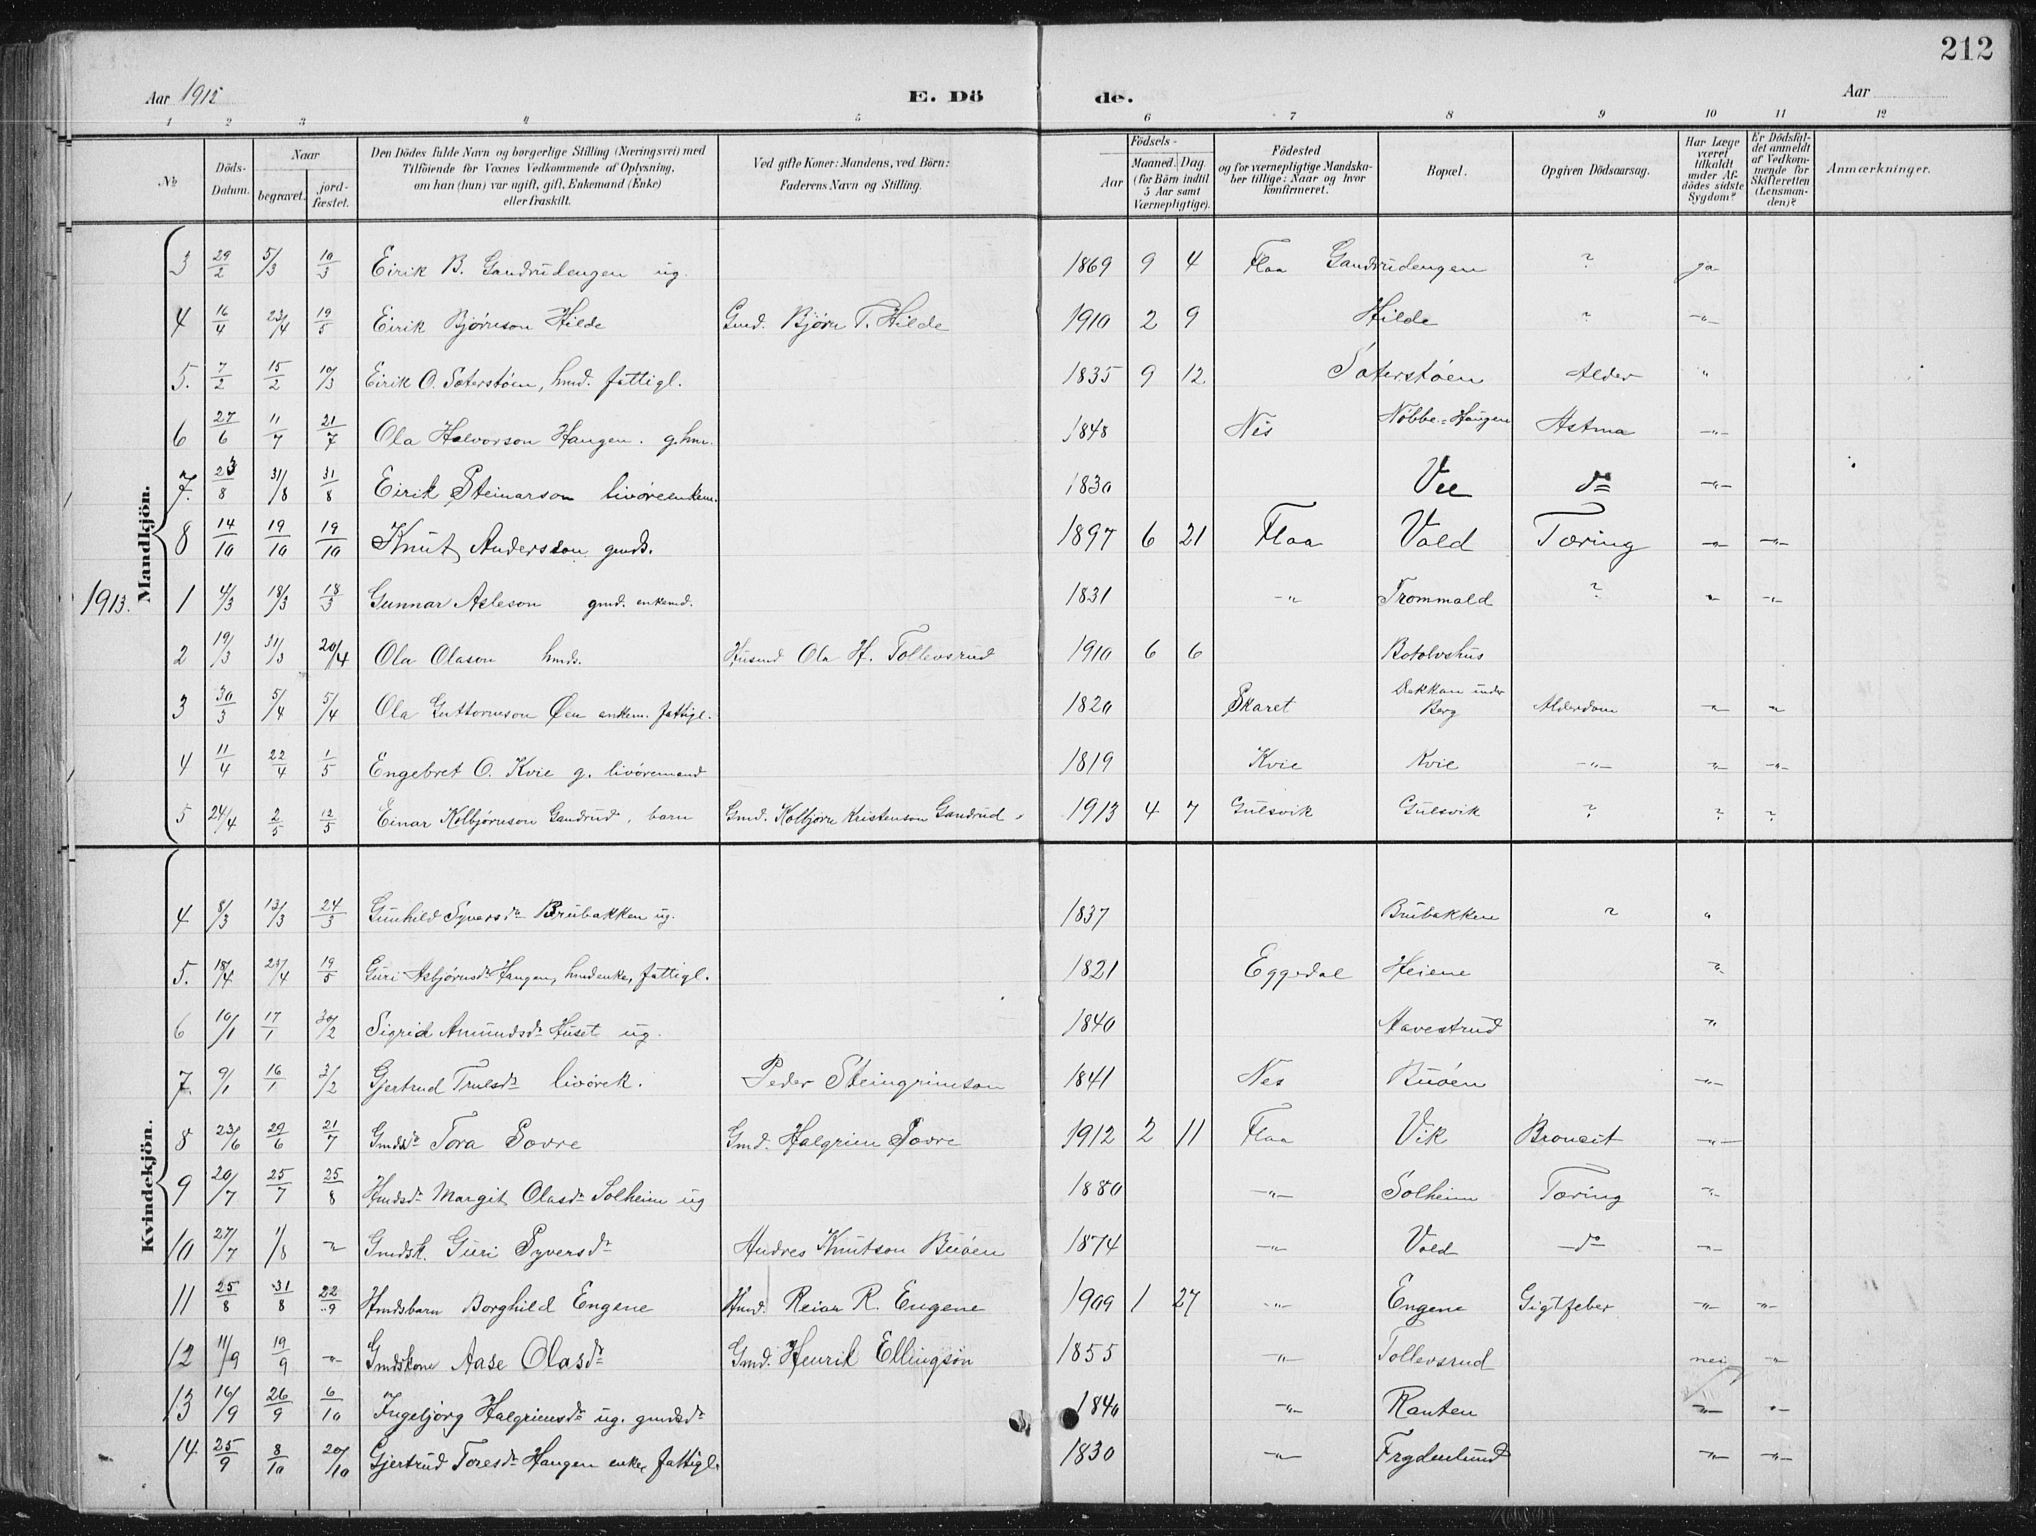 212
Aar 1912 E. Dö de. Aar
1 2 3 4 5 6 7 8 9 10 11 12
№ Döds-Datum. Naar begravet. jord-fæstet. Den Dödes fulde Navn og borgerlige Stilling (Næringsvei) med Tilföiende for Voxnes Vedkommende af Oplysning, om han (hun) var ugift, gift, Enkemand (Enke) eller fraskilt. Ved gifte Koner: Mandens, ved Börn: Faderens Navn og Stilling. Födsels- Aar Maaned. Dag. (for Börn indtil 5 Aar samt Værnepligtige). Födested og for værnepligtige Mandskaber tillige: Naar og hvor konfirmeret. Bopæl. Opgiven Dödsaarsag. Har Læge været tilkaldt under Afdödes sidste Sygdom? Er Dödsfaldet anmeldt af Vedkommende for Skifteretten (Lensmanden)? Anmærkninger.
Mandkjön.
3 29/2 5/3 10/3 Eirik B. Gandrudengen ug. 1869 9 4 Flaa Gandrudengen ? ja
4 16/4 23/4 19/5 Eirik Bjørnson Hilde Gmd. Bjørn T. Hilde 1910 2 9 Hilde ? -"-
5. 7/2 15/2 10/3 Eirik O. Sæterstøen, hmd. fattigl. 1835 9 12 Sæterstøen Alder "
6 27/6 11/7 21/7 Ola Halvorson Haugen. g. hm. 1848 Nes Nøbbe-Haugen Astma -"-
7. 23/8 31/8 31/8 Eirik Steinarson livøreenkem. 1830 Vee do -"-
8 14/10 19/10 19/10 Knut Andersson gmds. 1897 6 21 Flaa Vold Tæring -"- -"-
1913.
1 4/3 18/3 18/3 Gunnar Asleson gmd. enkemd. 1831 -"- Trommald ? " -"-
2 19/3 31/3 20/4 Ola Olason hmds. Husmd Ola H. Tollevsrud 1910 6 6 Botolvshus
3 30/3 5/4 5/4 Ola Guttormson Øen enkem. fattigl. 1820 Skaret Bakkan under Berg Alderdom -"- "
4 11/4 22/4 1/5 Engebret O. Kvie g. livøremand 1819 Kvie Kvie -"- -"- -"-
5 24/4 2/5 12/5 Einar Kolbjørnson Gandrud, barn Gmd. Kolbjørn Kristenson Gandrud 1913 4 7 Gulsvik Gulsvik ? ? ?
Kvindekjön.
4 8/3 13/3 24/3 Gunhild Syversdr Brubakken ug. 1837 Brubakken ? "
5. 18/4 25/4 19/5 Guri Asbjørnsdr Haugen, hmdenke, fattigl. 1821 Eggedal Heiene -"-
6 10/1 17/1 30/2 Sigrid Amundsdr Huset ug. 1840 Havestrud "
7. 9/1 16/1 3/2 Gjertrud Trulsdr livørek. Peder Steingrimson 1841 Nes Buøen -"-
8 23/6 29/6 21/7 Gmdsdr Tora Sovre Gmd. Halgrim Sovre 1912 2 11 Flaa Vik Broncit -"-
9 20/7 25/7 25/8 Hmdsdr Margit Olasdr Solheim ug 1880 -"- Solheim Tæring -"-
10 27/7 1/8 " Gmdsk. Guri Syversdr Andres Knutson Buøen 1874 -"- Vold -do -"-
11 25/8 31/8 22/9 Hmdsbarn Borghild Engene Hmd. Reiar R. Engene 1909 1 27 -"- Engene Gigtfeber -"- -"-
12 11/9 19/9 -"- Gmdskone Aase Olasdr Gmd. Henrik Ellingson 1855 -"- Tollevsrud nei -"-
13 16/9 26/9 6/10 Ingebjørg Halgrimsdr ug. gmdsdr 1840 -"- Ranten -"- "
14. 25/9 8/10 20/10 Gjertrud Toresdr Haugen enke, fattigl. 1830 -"- Frydenlund -"- -"-